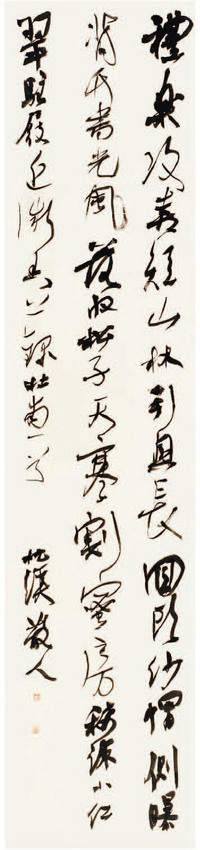 禮樂攻吾短山林引興長回頭紗帽側曝
背竹書光風落收松子天寒割蜜房稀疏小紅
翠駐屐近微香 錄杜甫一首
散人